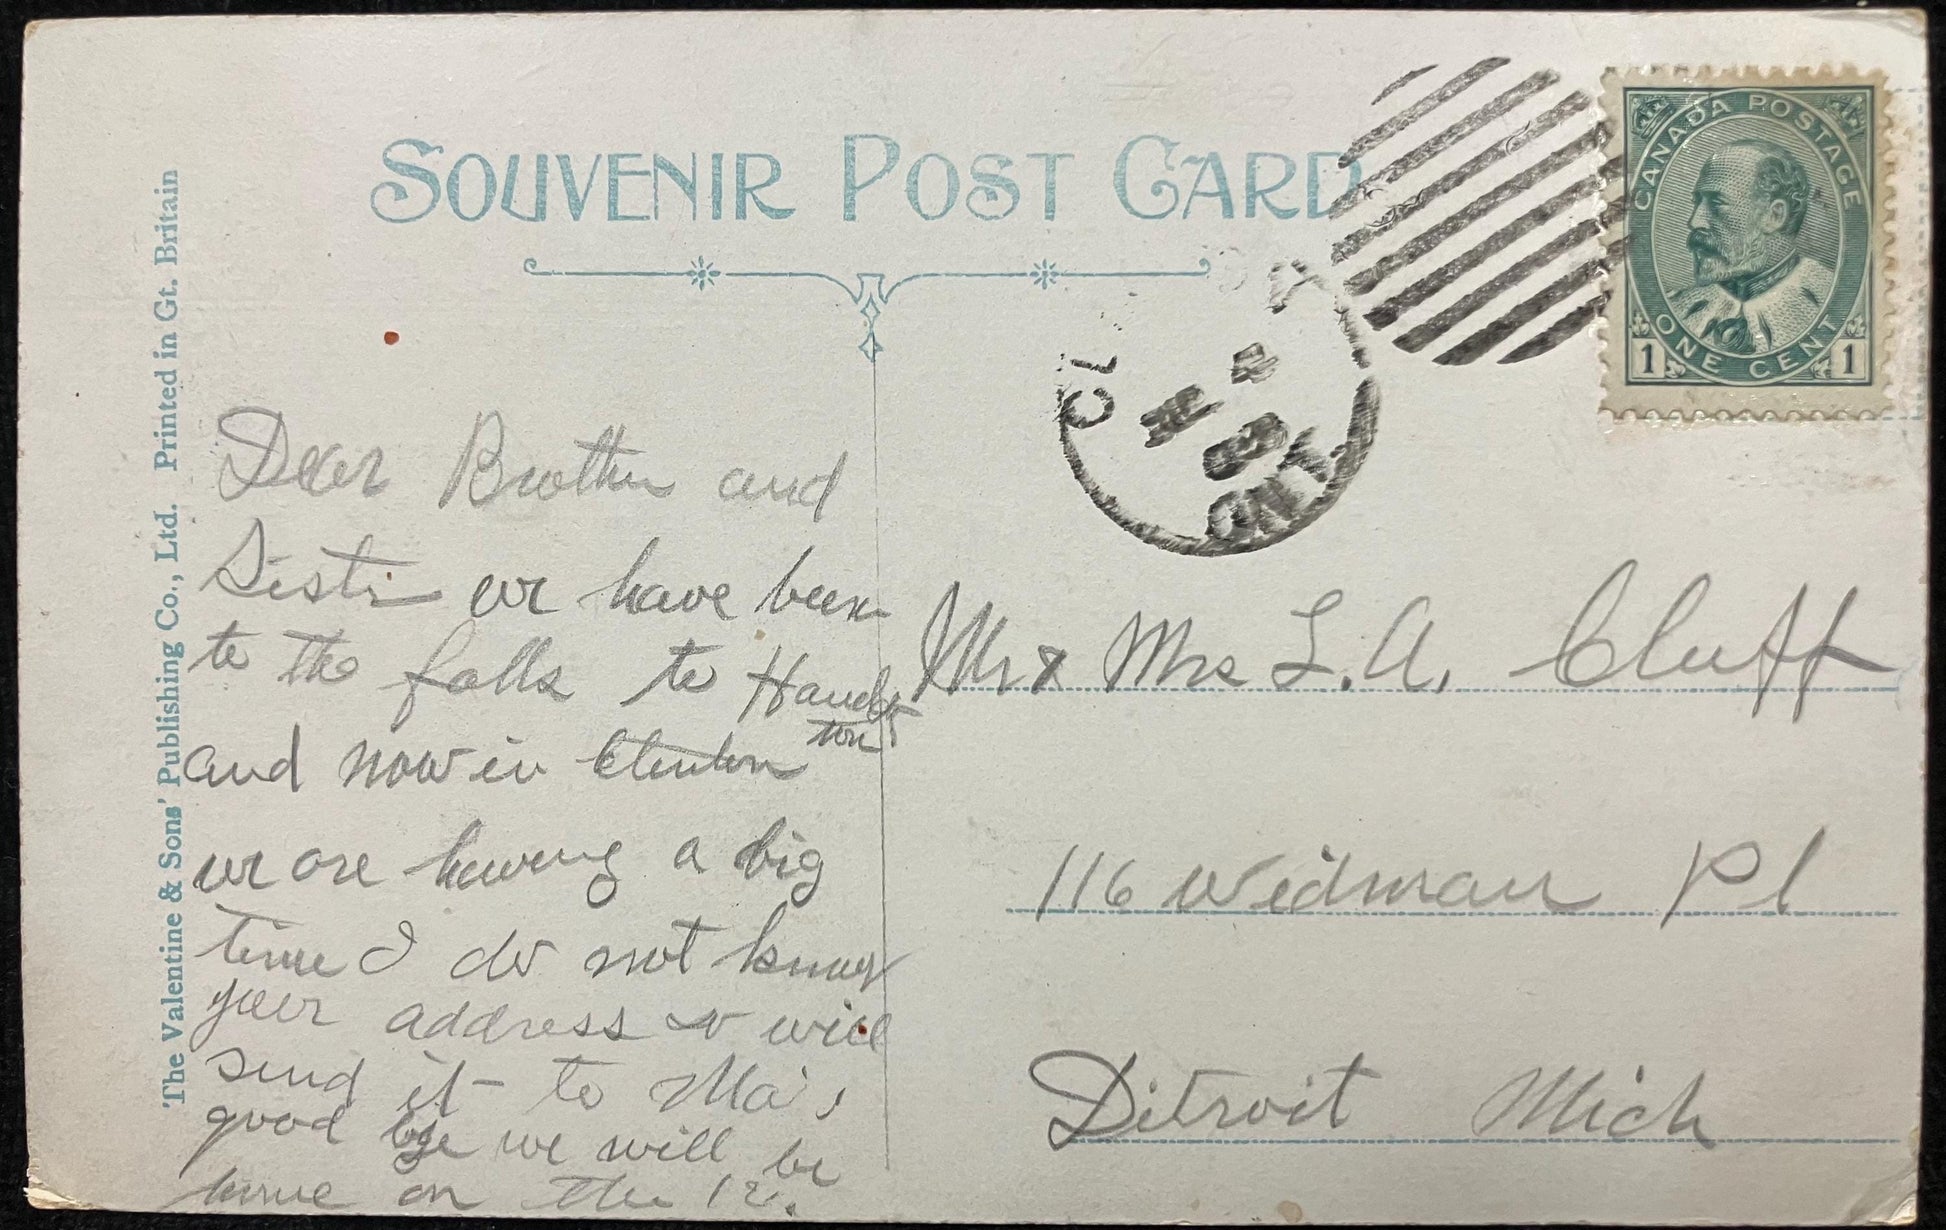 SOUVENIR POST CARD
The Valentine & Sons' Publishing Co., Ltd. Printed in Gt. Britain
CANADA POSTAGE
ONE CENT
1 1
CL
ONT
Dear Brother and
Sister we have been
to the falls to
and now in Clinton
we are having a big
time I do not know
your address so will
send it to Ma's
good bye we will be
home on the 12.
Mr & Mrs L. A. Cluff
116 Widman Pl
Detroit Mich